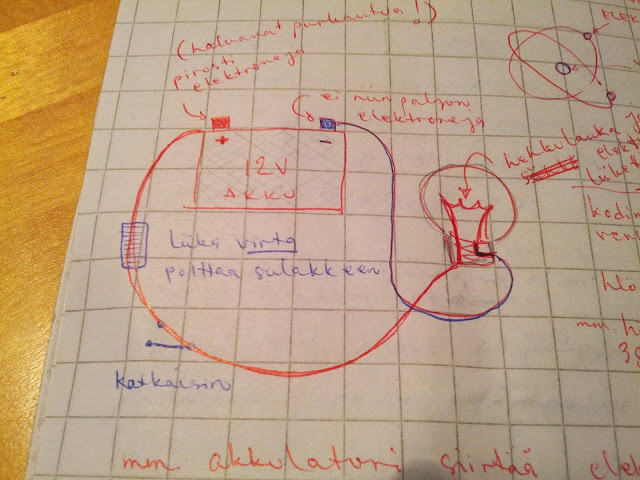 (haluavat purkautua!)
pirusti
elektroneja
ei niin paljon
elektroneja
+
-
12V
AKKU
Liika virta
polttaa sulakkeen
Katkaisin
hehkulanka
elekt
liike
kodin
hlö
mm. h
mm. akkulaturi siirtää elek